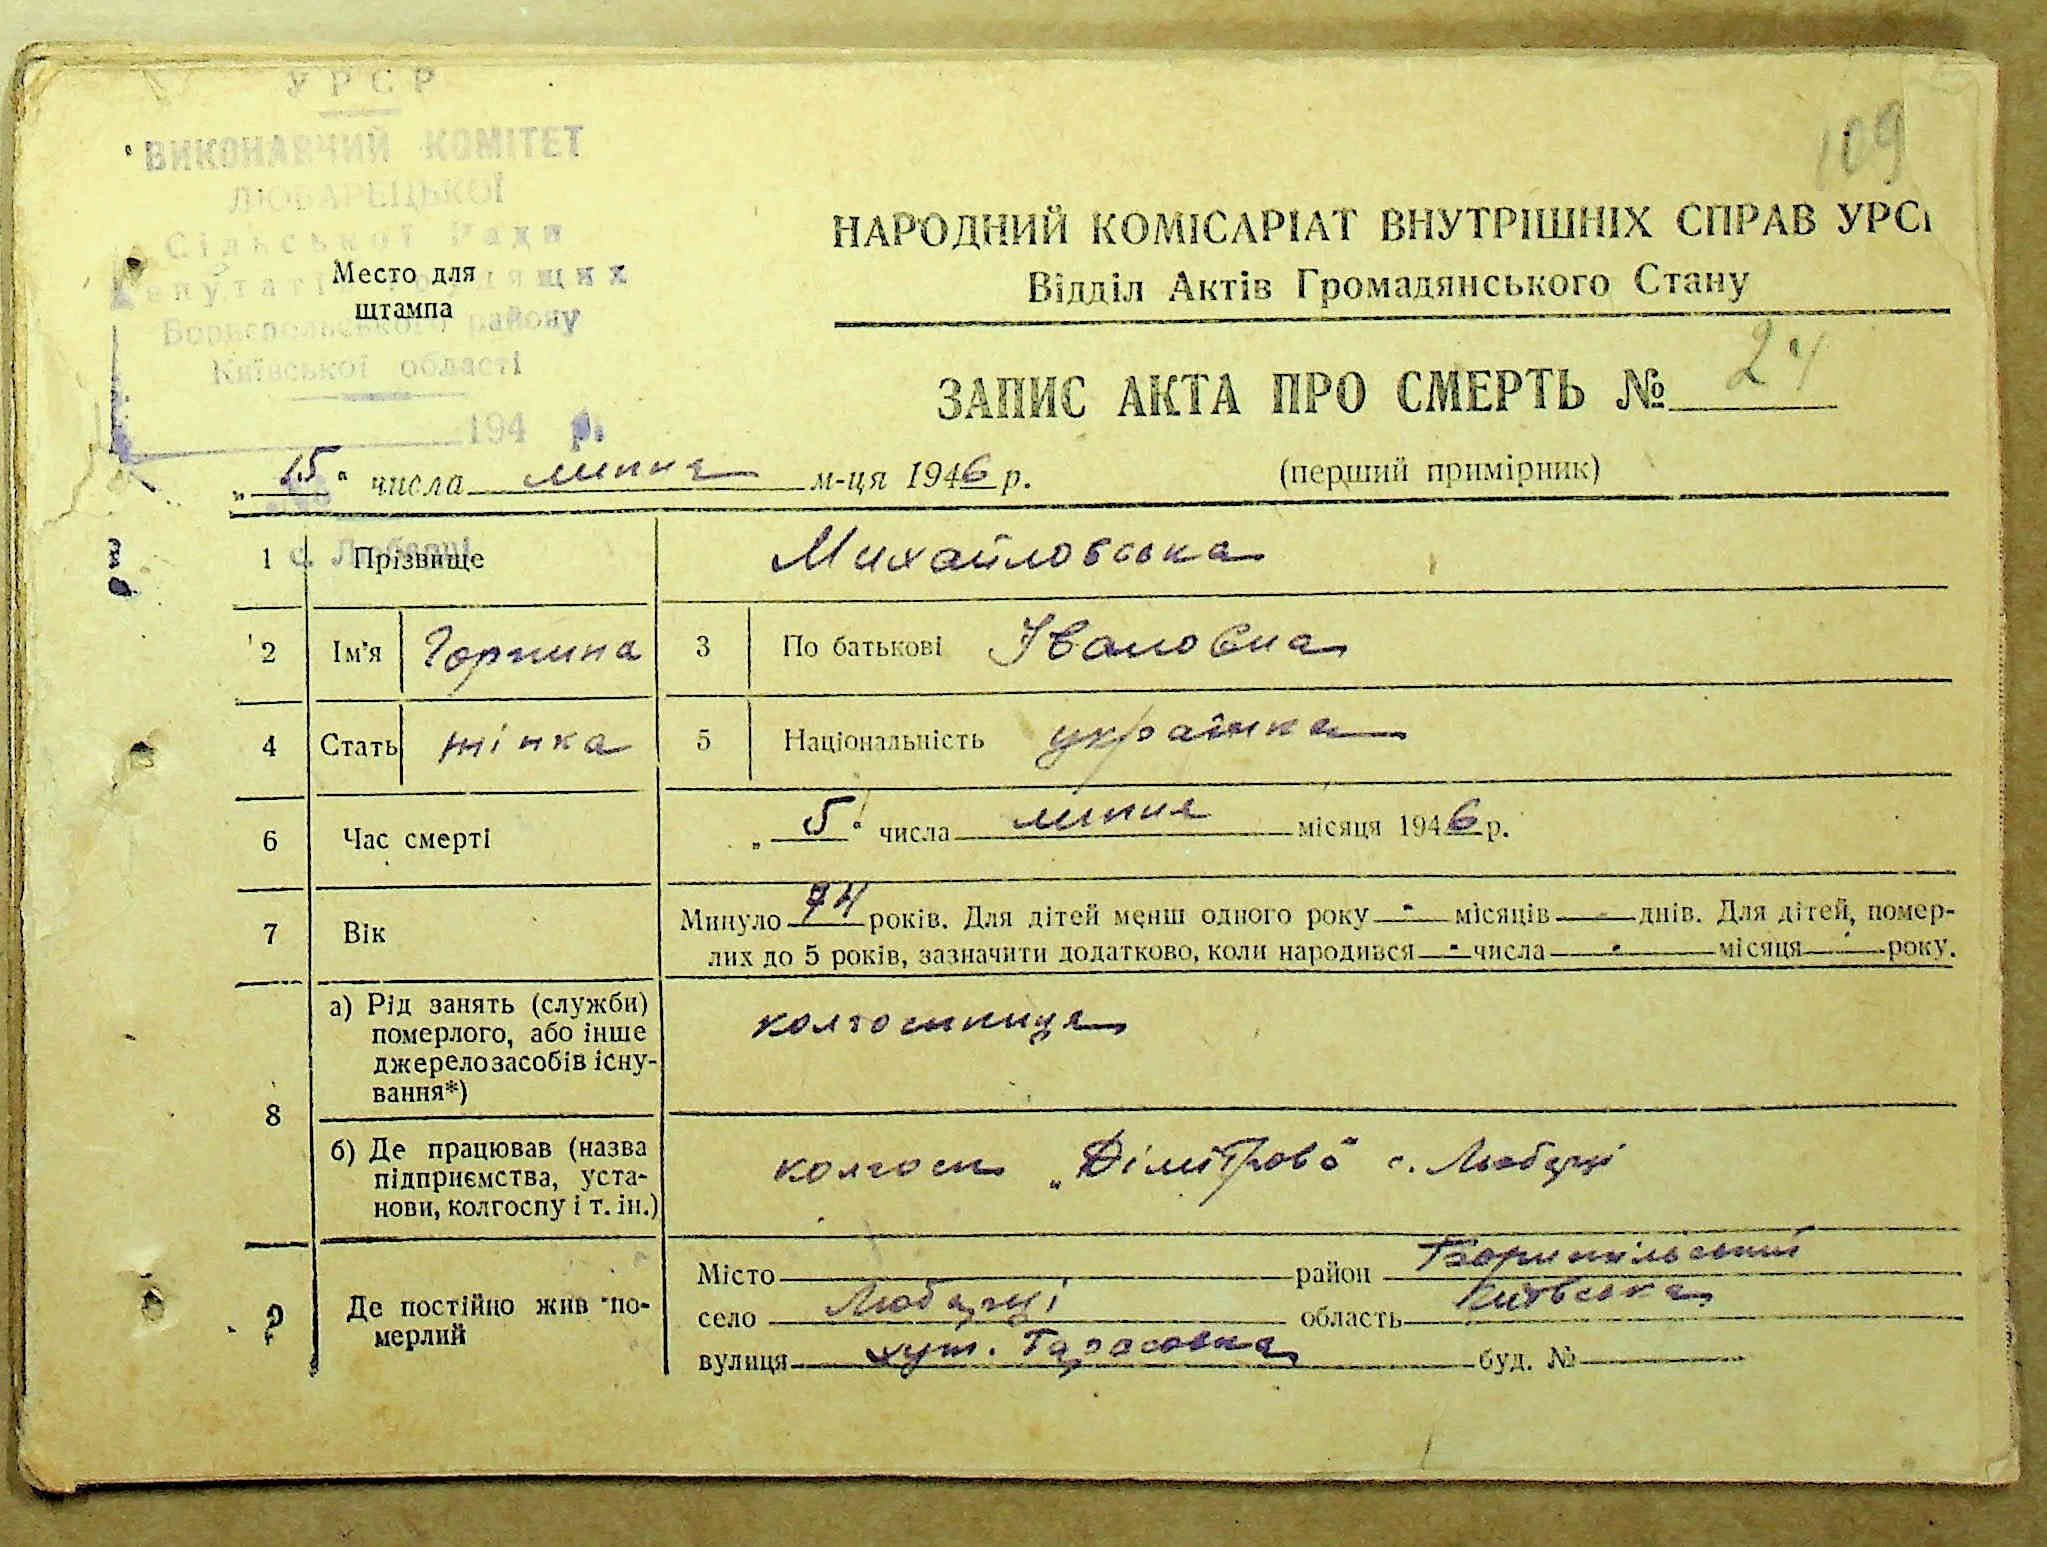 УРСР
ВИКОНАВЧИЙ КОМІТЕТ
ЛЮБАРЕЦЬКОЇ
Сільської Ради
Депутатів Трудящих
Бориспольського району
Київської області
194 р.
с. Любарці
Место для
штампа
109
НАРОДНИЙ КОМІСАРІАТ ВНУТРІШНІХ СПРАВ УРСР
Відділ Актів Громадянського Стану
ЗАПИС АКТА ПРО СМЕРТЬ № 24
„15“ числа липня м-ця 1946 р. (перший примірник)
1 Прізвище Михайловська
2 Ім'я Горпина 3 По батькові Івановна
4 Стать жінка 5 Національність українка
6 Час смерті „5“ числа липня місяця 1946 р.
7 Вік Минуло 74 років. Для дітей менш одного року - місяців - днів. Для дітей, помер-
лих до 5 років, зазначити додатково, коли народився - числа - місяця - року.
8 а) Рід занять (служби)
померлого, або інше
джерело засобів існу-
вання*) колгоспниця
б) Де працював (назва
підприємства, уста-
нови, колгоспу і т. ін.) колгосп „Дімітрова“ с. Любарці
9 Де постійно жив по-
мерлий
Місто район Бориспільський
село Любарці область Київська
вулиця хут. Тарасовка буд. №